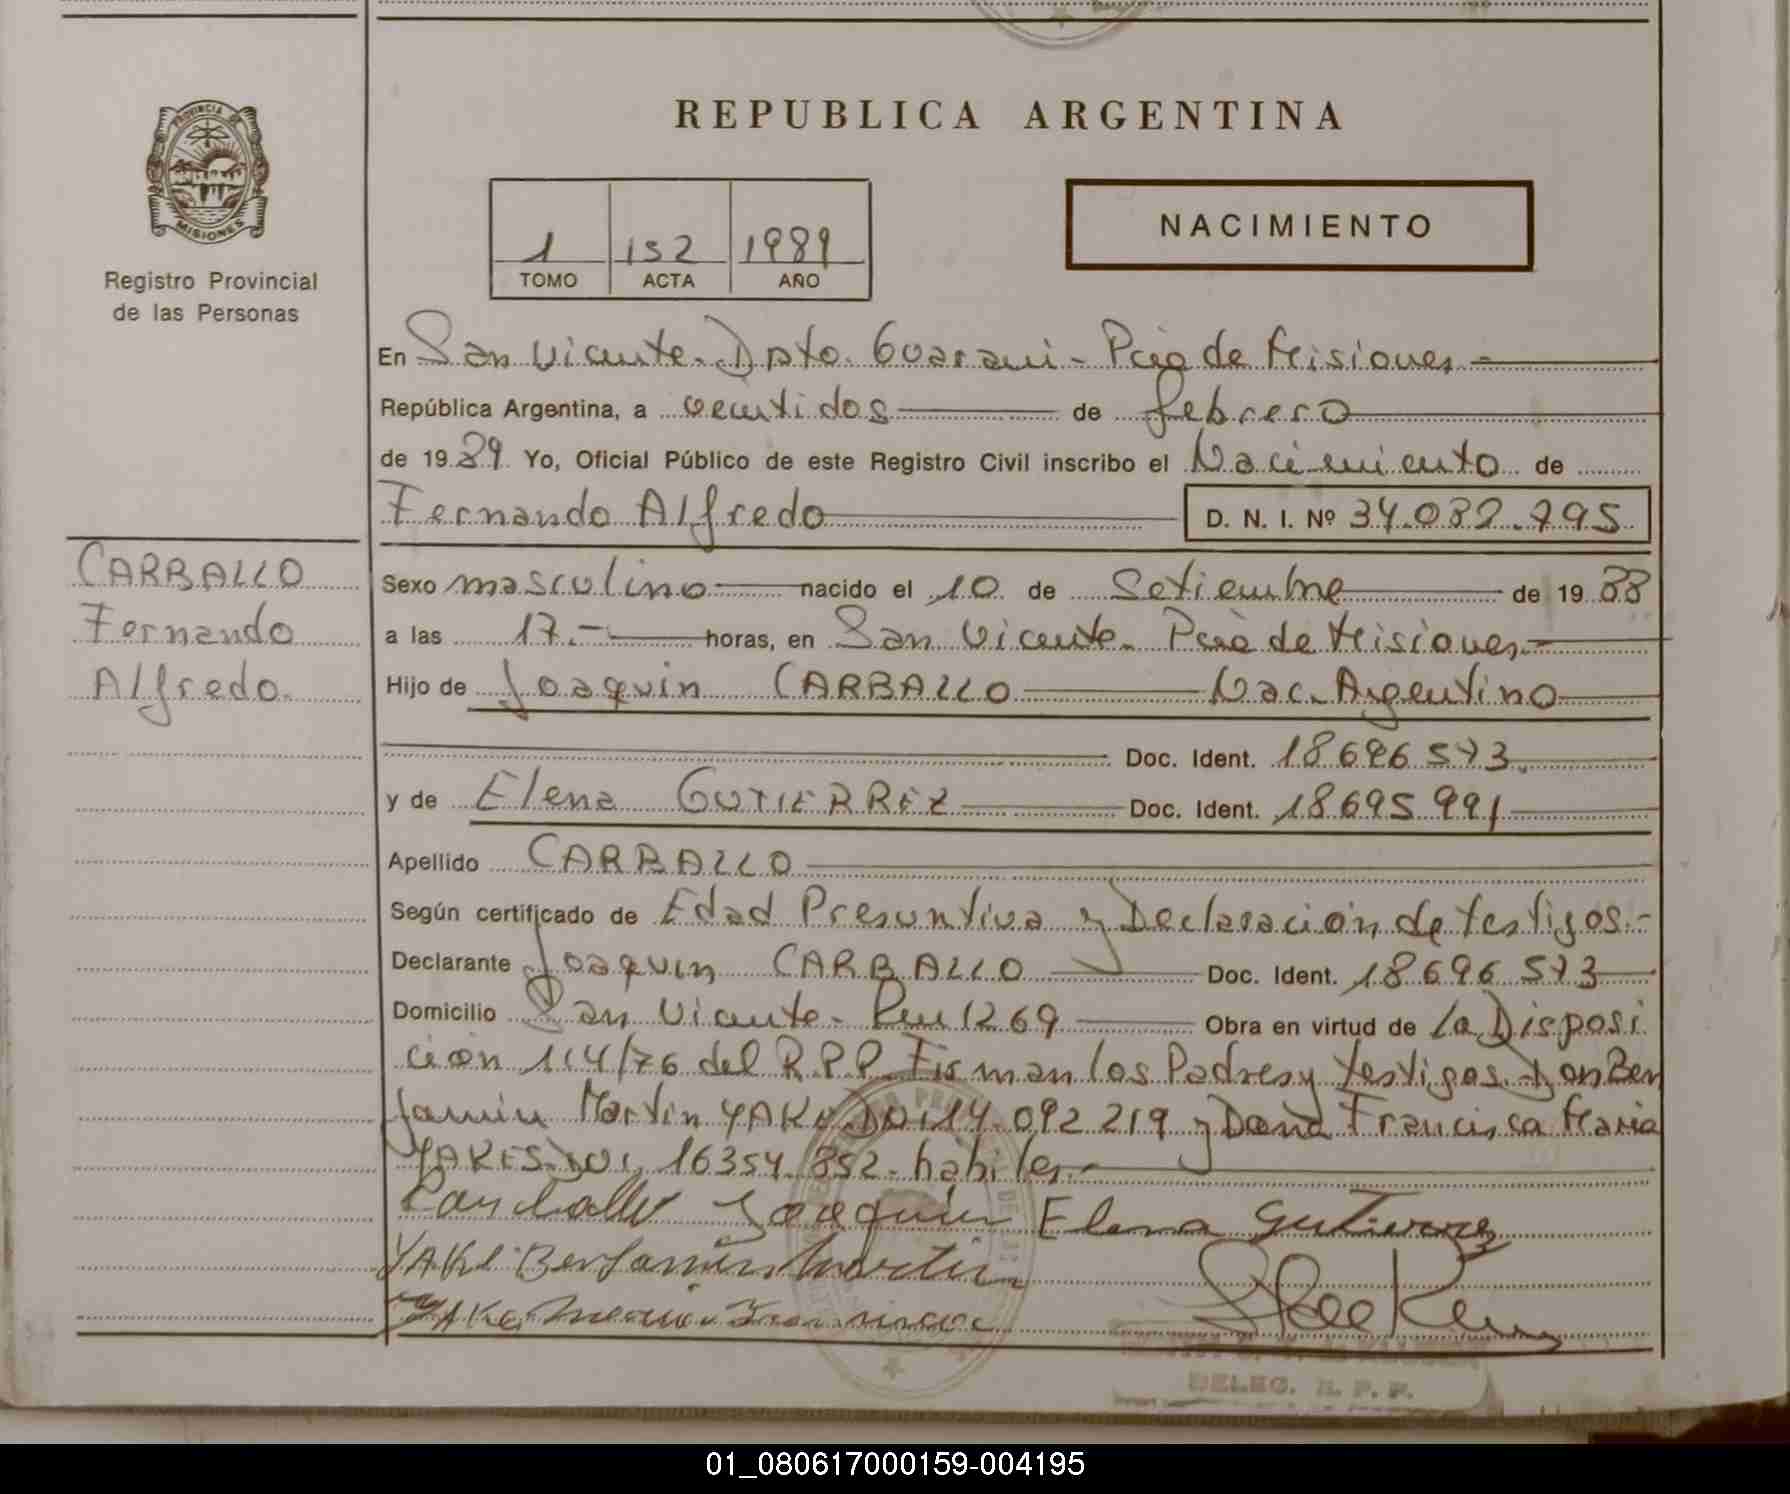 REPUBLICA ARGENTINA
PROVINCIA DE
MISIONES
Registro Provincial
de las Personas
1 152 1989
TOMO ACTA AÑO
NACIMIENTO
En San Vicente. Dpto. Guarani - Pcia de Misiones
República Argentina, a veintidos de febrero
de 1989 Yo, Oficial Público de este Registro Civil inscribo el Nacimiento de
Fernando Alfredo D. N. I. Nº 34.082.795
CARBALLO
Fernando
Alfredo.
Sexo masculino nacido el 10 de Setiembre de 1988
a las 17.- horas, en San Vicente. Pcia de Misiones.-
Hijo de Joaquin CARBALLO Nac. Argentino
Doc. Ident. 18696573.
y de Elena GUTIERREZ Doc. Ident. 18695991
Apellido CARBALLO
Según certificado de Edad Presuntiva y Declaración de testigos.-
Declarante Joaquin CARBALLO Doc. Ident. 18696573
Domicilio San Vicente - Km 1269 Obra en virtud de la Disposi
ción 114/76 del R.P.P. Firman los Padres y testigos. Don Ben
jamin Martin YAKE DNI 14.092 219 y Dona Francisca Maria
YAKES DNI 16354.852. habiles.-
Carballo Joaquin Elena Gutierrez
YAKE Benjamin Martin
YAKE Maria Francisca
DELEG. R. P. P.
01_080617000159-004195